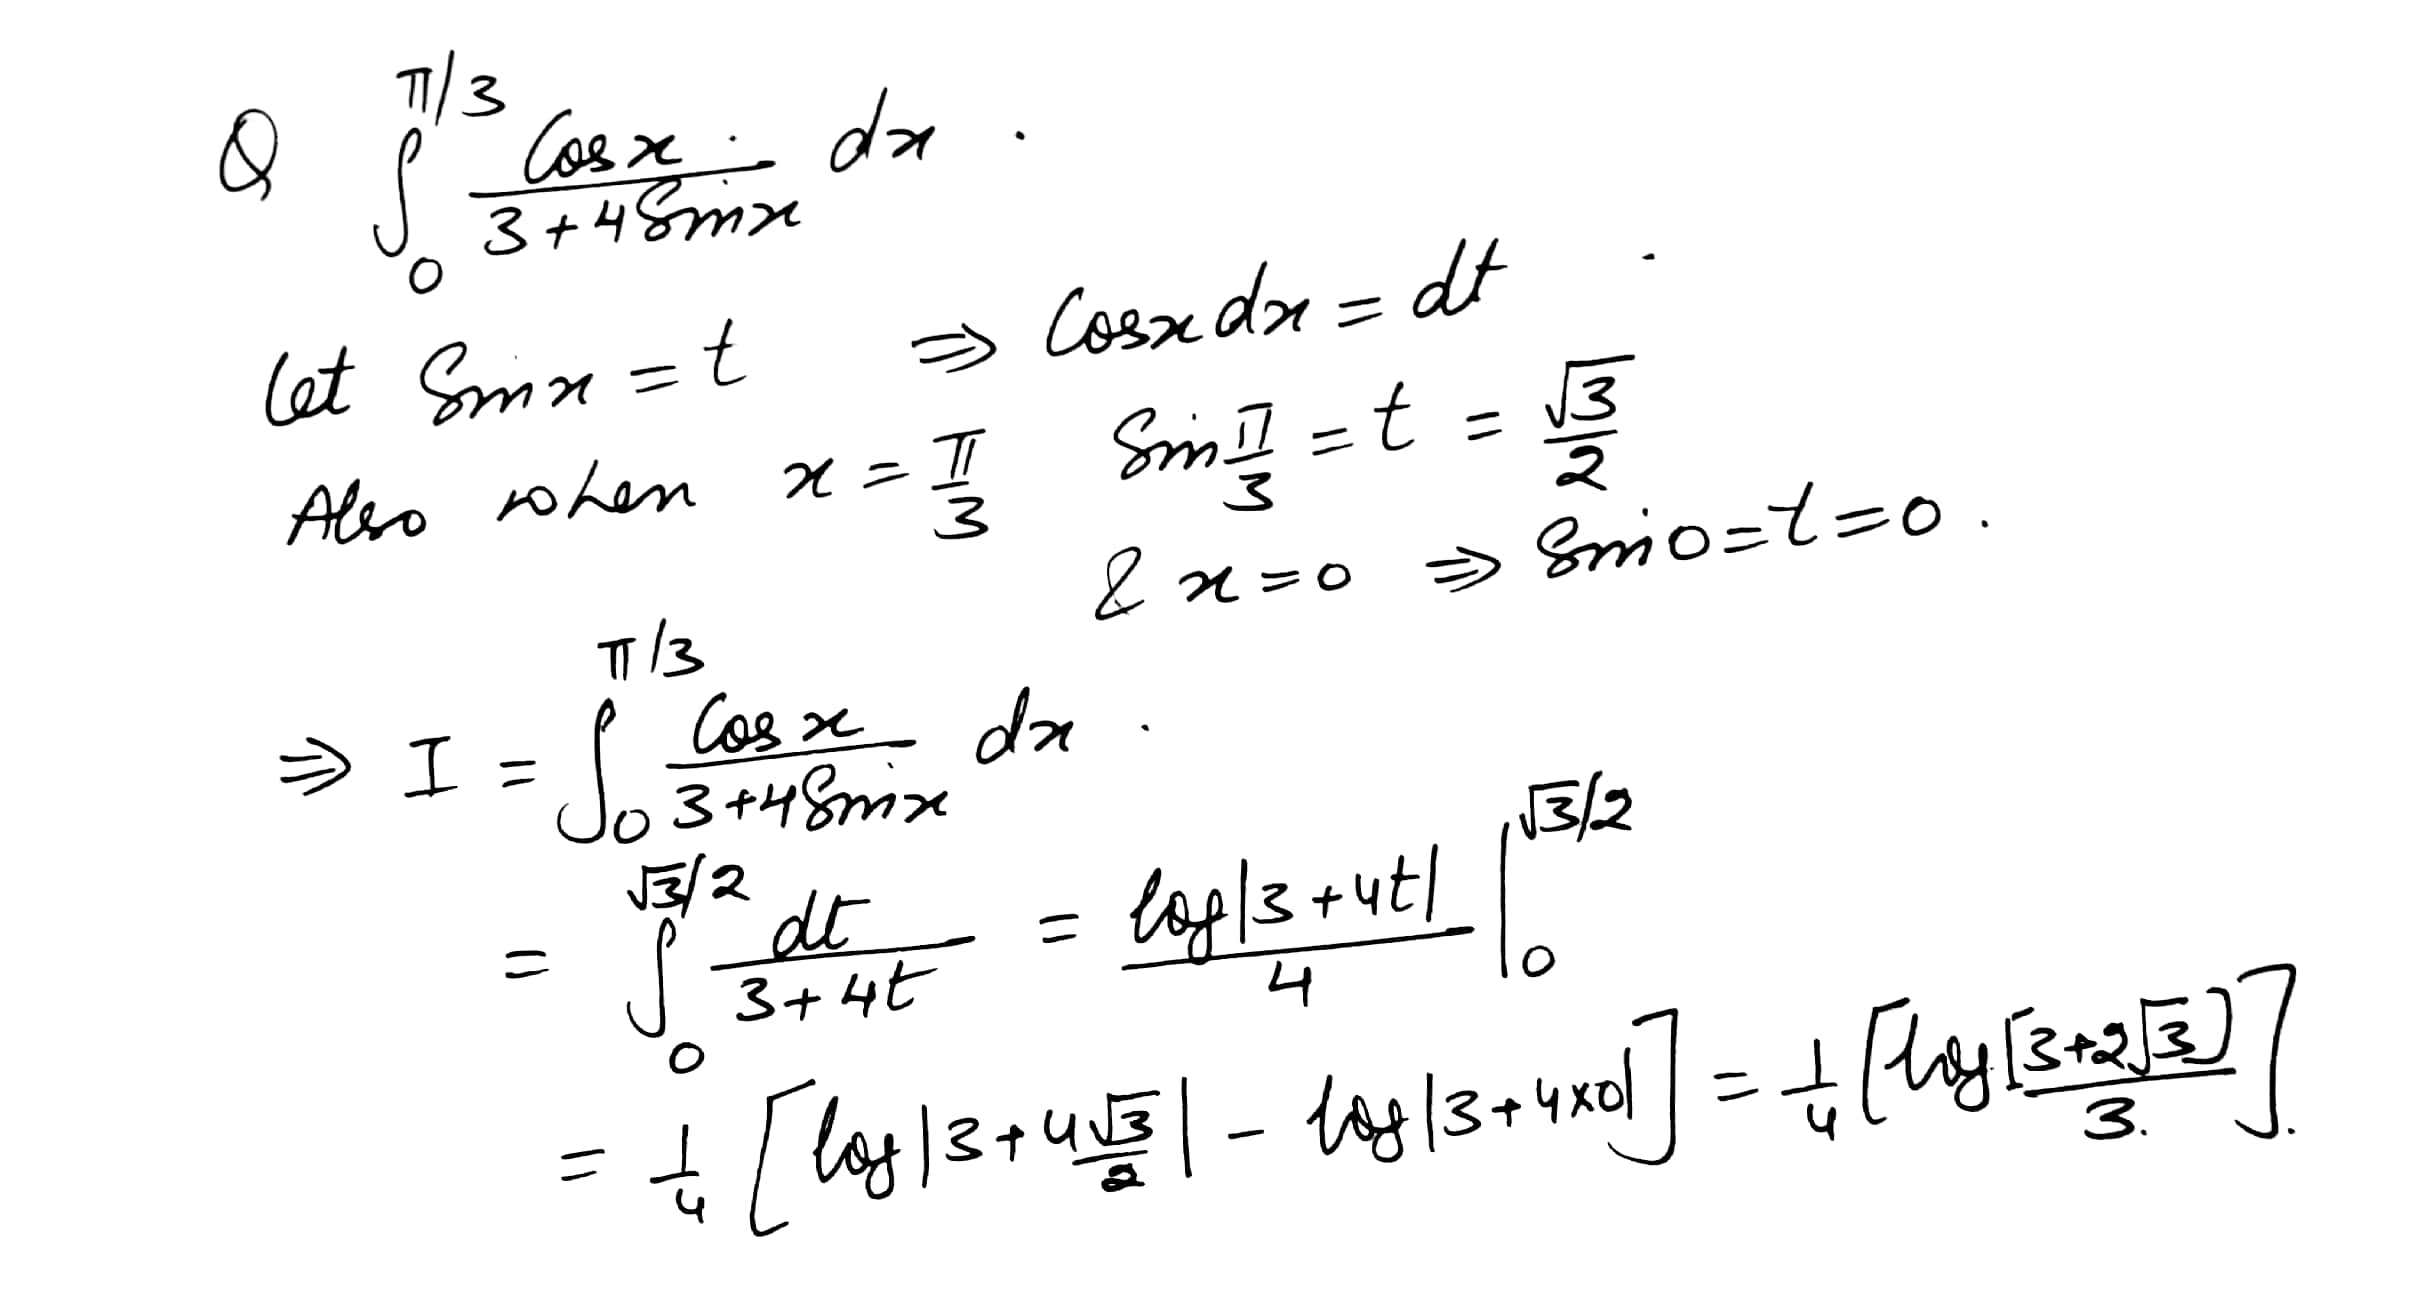 Q ∫₀^{π/3} Cosx / (3+4Sinx) dx.
Let Sinx = t ⇒ Cosx dx = dt
Also when x = π/3 Sin π/3 = t = √3/2
& x=0 ⇒ Sin0=t=0.
⇒ I = ∫₀^{π/3} Cosx / (3+4Sinx) dx.
= ∫₀^{√3/2} dt / (3+4t) = log|3+4t| / 4 |₀^{√3/2}
= 1/4 [log|3+4√3/2| - log|3+4×0|] = 1/4 [log [3+2√3] / 3.].